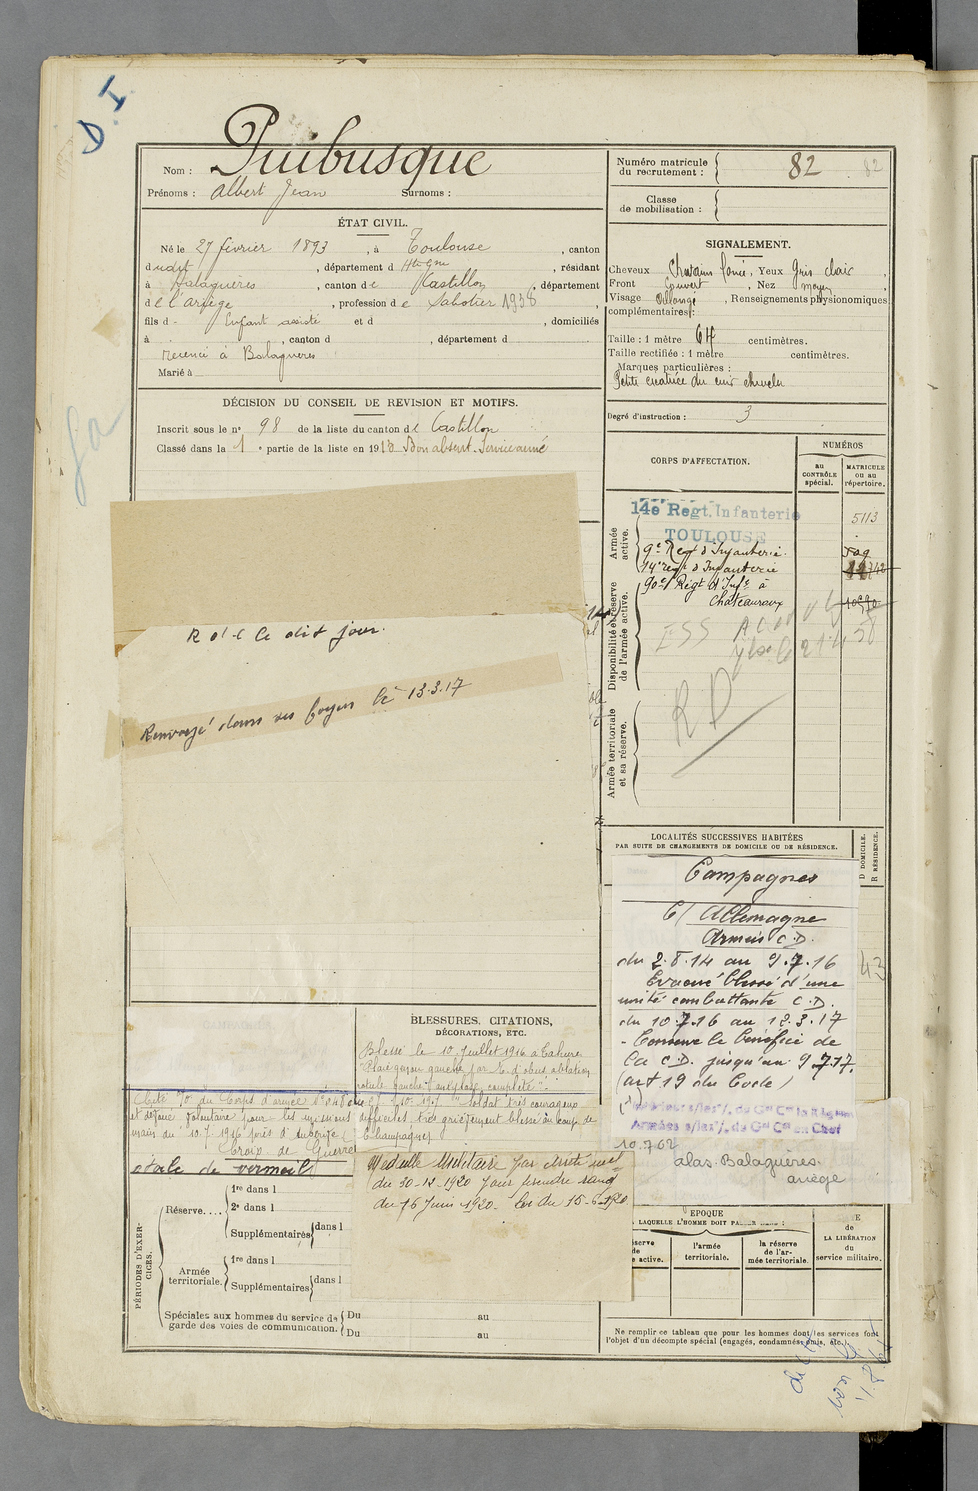 D.I
Nom : Puibusque
Prénoms : Albert Jean Surnoms :
ÉTAT CIVIL.
Né le 27 février 1893, à Toulouse, canton
dudit, département d Hte Gne, résidant
à Balaguères, canton de Castillon, département
de l'Ariège, profession de Sabotier 1938,
fils d - Enfant assisté et d , domiciliés
à , canton d , département d
recensé à Balaguères
Marié à
DÉCISION DU CONSEIL DE REVISION ET MOTIFS.
Inscrit sous le n° 98 de la liste du canton de Castillon
Classé dans la 1 e partie de la liste en 1913 Bon absent. Service armé
R d'l le dit jour.
Renvoyé dans ses foyers le 13.3.17
Numéro matricule du recrutement : 82 82
Classe de mobilisation :
SIGNALEMENT.
Cheveux châtain foncé, Yeux Gris clair,
Front couvert, Nez moyen
Visage allongé, Renseignements physionomiques
complémentaires :
Taille : 1 mètre 64 centimètres.
Taille rectifiée : 1 mètre centimètres.
Marques particulières :
Petite cicatrice du cuir chevelu
Degré d'instruction : 3
CORPS D'AFFECTATION.
NUMÉROS
au CONTRÔLE spécial.
MATRICULE ou au répertoire.
Armée active.
14e Regt. Infanterie
TOULOUSE
5113
9e Regt d'Infanterie.
14e regt d'Infanterie
90e Régt d'Infie à
Châteauroux
Disponibilité et réserve de l'armée active.
RD
Armée territoriale et sa réserve.
LOCALITÉS SUCCESSIVES HABITÉES
PAR SUITE DE CHANGEMENTS DE DOMICILE OU DE RÉSIDENCE.
D DOMICILE.
R RÉSIDENCE.
Campagnes
C/ Allemagne
Armées C.D.
du 2.8.14 au 9.7.16
Evacué blessé d'une
unité combattante C.D.
du 10.7.16 au 13.3.17
- Conserve le bénéfice de
la C.D. jusqu'au 9.7.17.
(art 19 du Code)
43
10.762
alas. Balaguères.
ariège
BLESSURES, CITATIONS,
DÉCORATIONS, ETC.
Blessé le 10 juillet 1916 à Tahure
Plaie genou gauche par E. d'obus ablation
rotule gauche "ankylose complète".
Cité "O" du Corps d'armée "soldat très courageux
et dévoué volontaire pour les missions difficiles très grièvement blessé au coup de
main du 10.7.1916 près d'Auberive (Champagne)
Croix de Guerre
étoile de vermeil
Médaille Militaire par arrêté mel
du 30-12-1920 pour prendre rang
du 16 juin 1920. Loi du 15-6-1920
PÉRIODES D'EXERCICES.
Réserve....
1re dans l
2e dans l
Supplémentaires dans l
Armée territoriale.
1re dans l
Supplémentaires dans l
Spéciales aux hommes du service de garde des voies de communication.
Du au
Du au
EPOQUE
À LAQUELLE L'HOMME DOIT PASSER DANS :
l'armée territoriale.
la réserve de l'armée territoriale.
de LA LIBÉRATION du service militaire.
Ne remplir ce tableau que pour les hommes dont les services font
l'objet d'un décompte spécial (engagés, condamnés, omis, etc.)